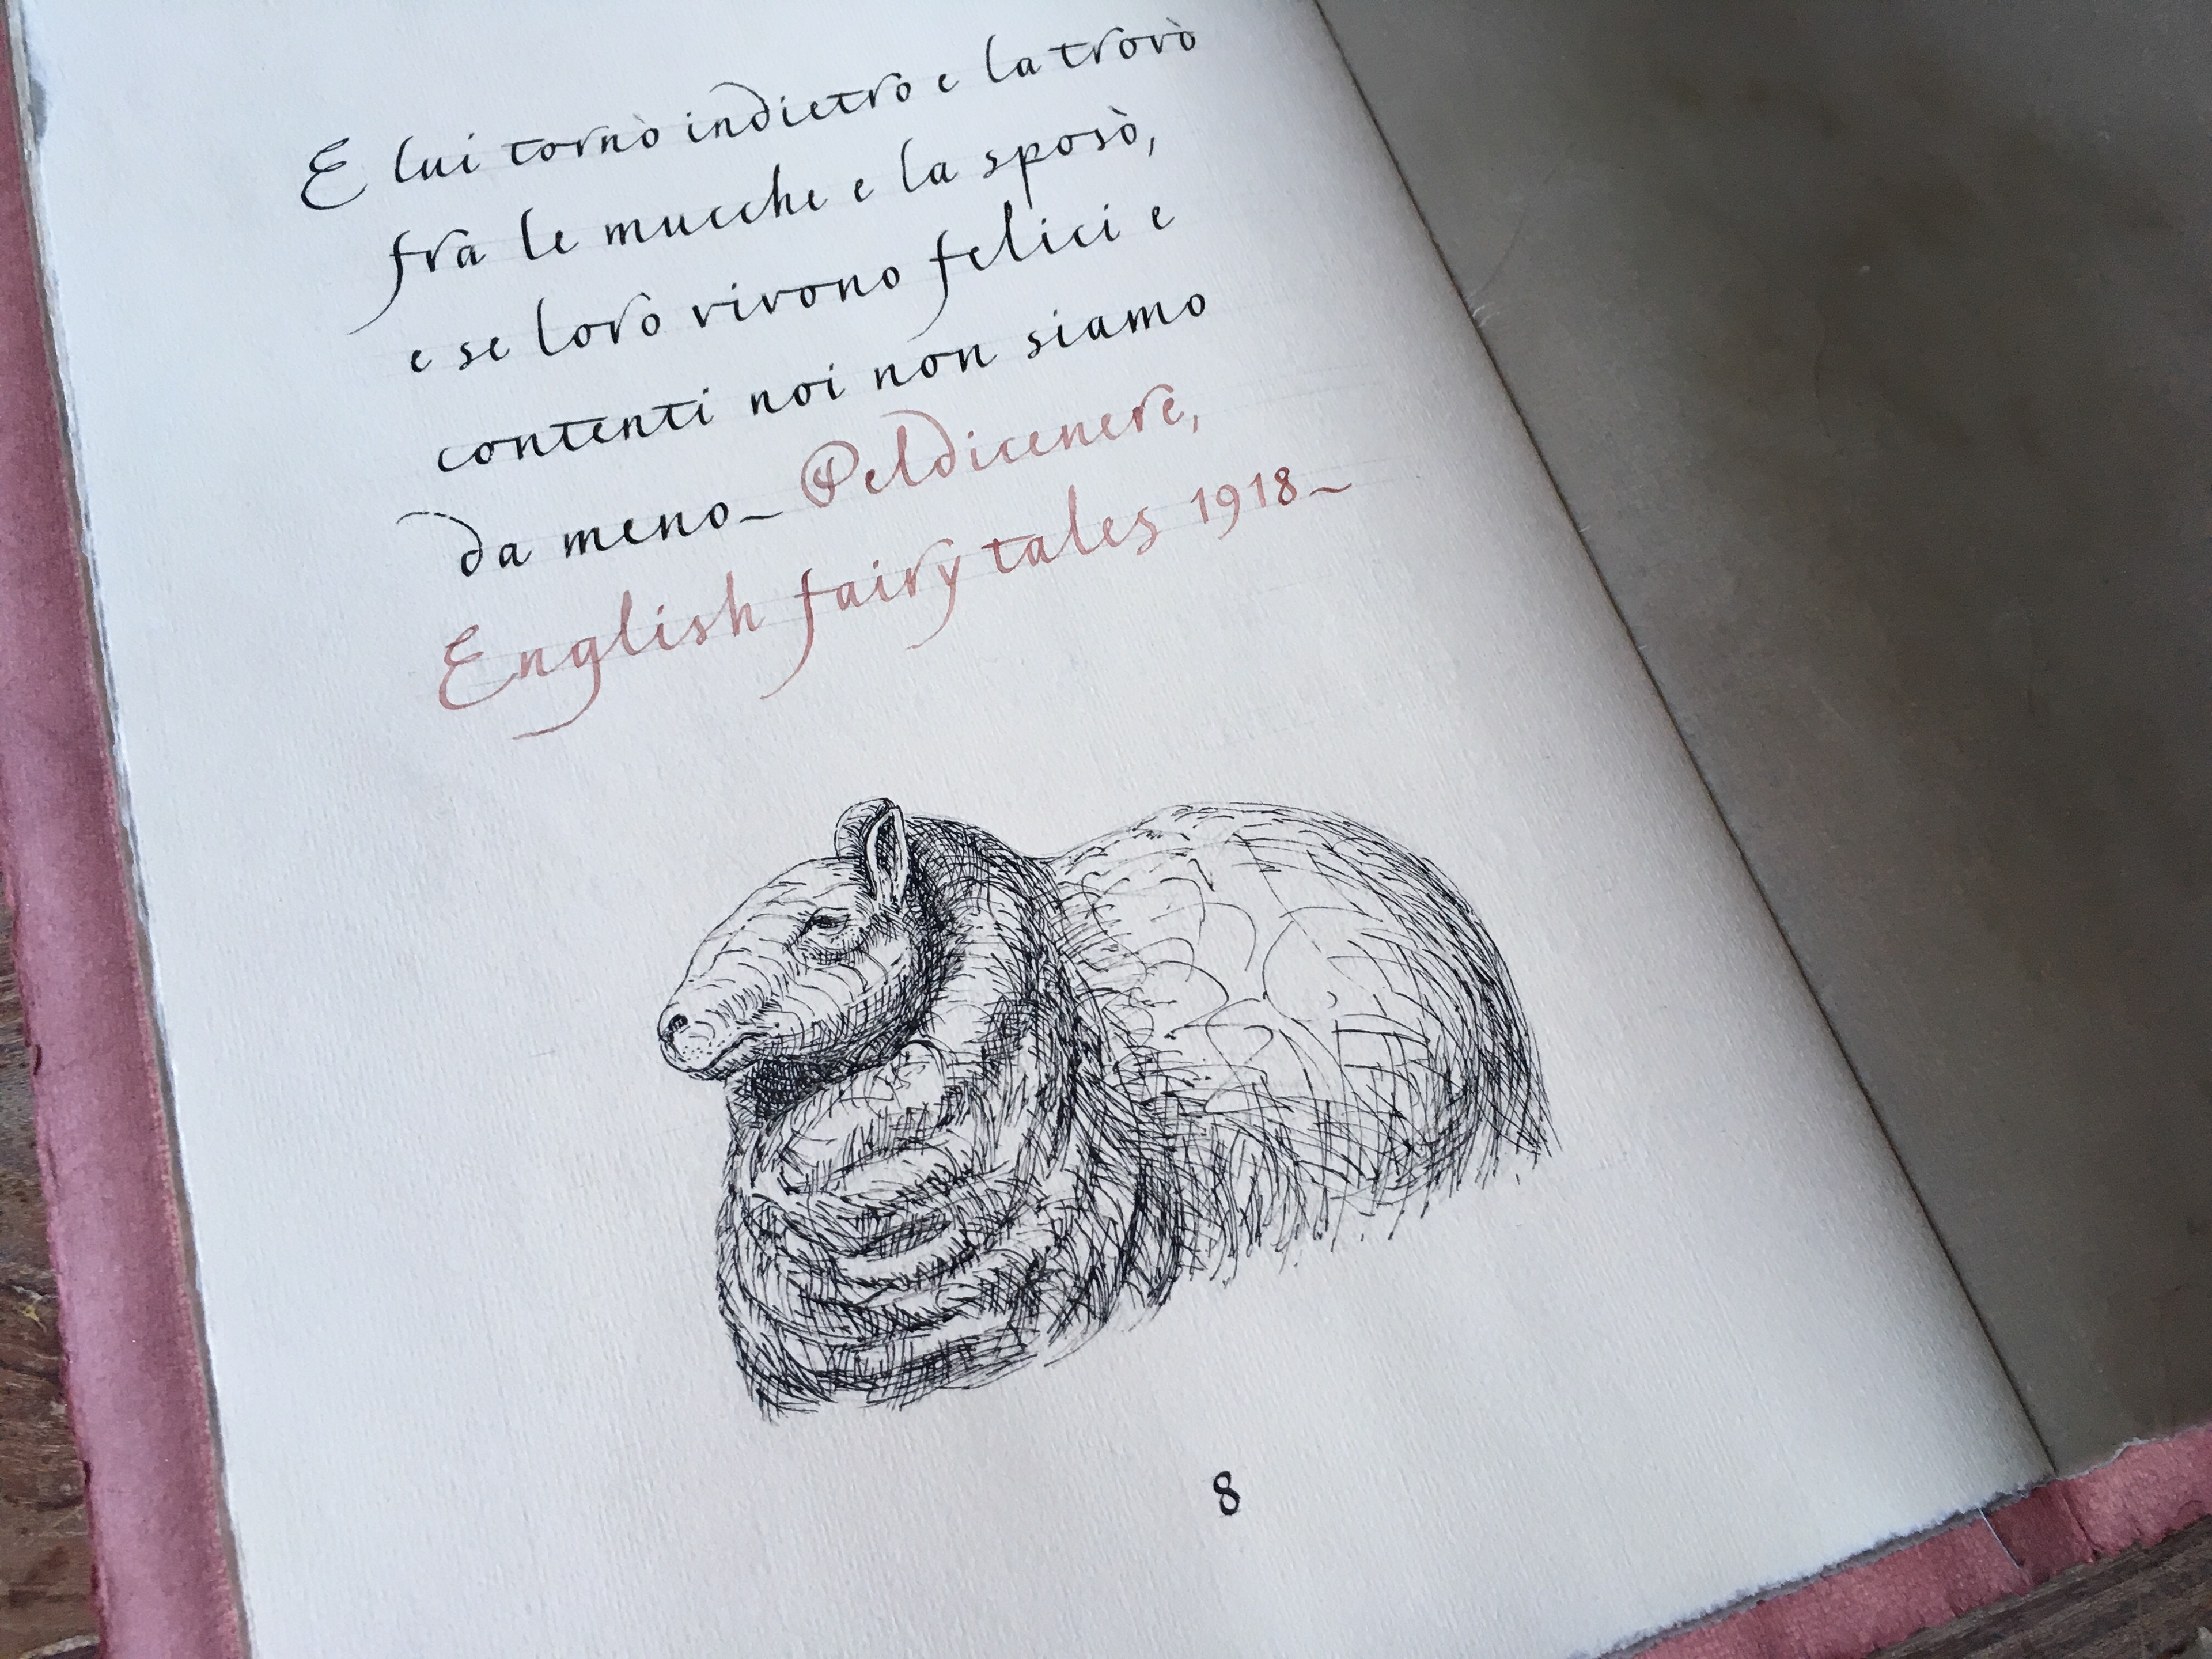 E lui tornò indietro e la trovò
fra le mucche e la sposò,
e se loro vivono felici e
contenti noi non siamo
da meno~ Peldicenere,
English fairy tales 1918~
8